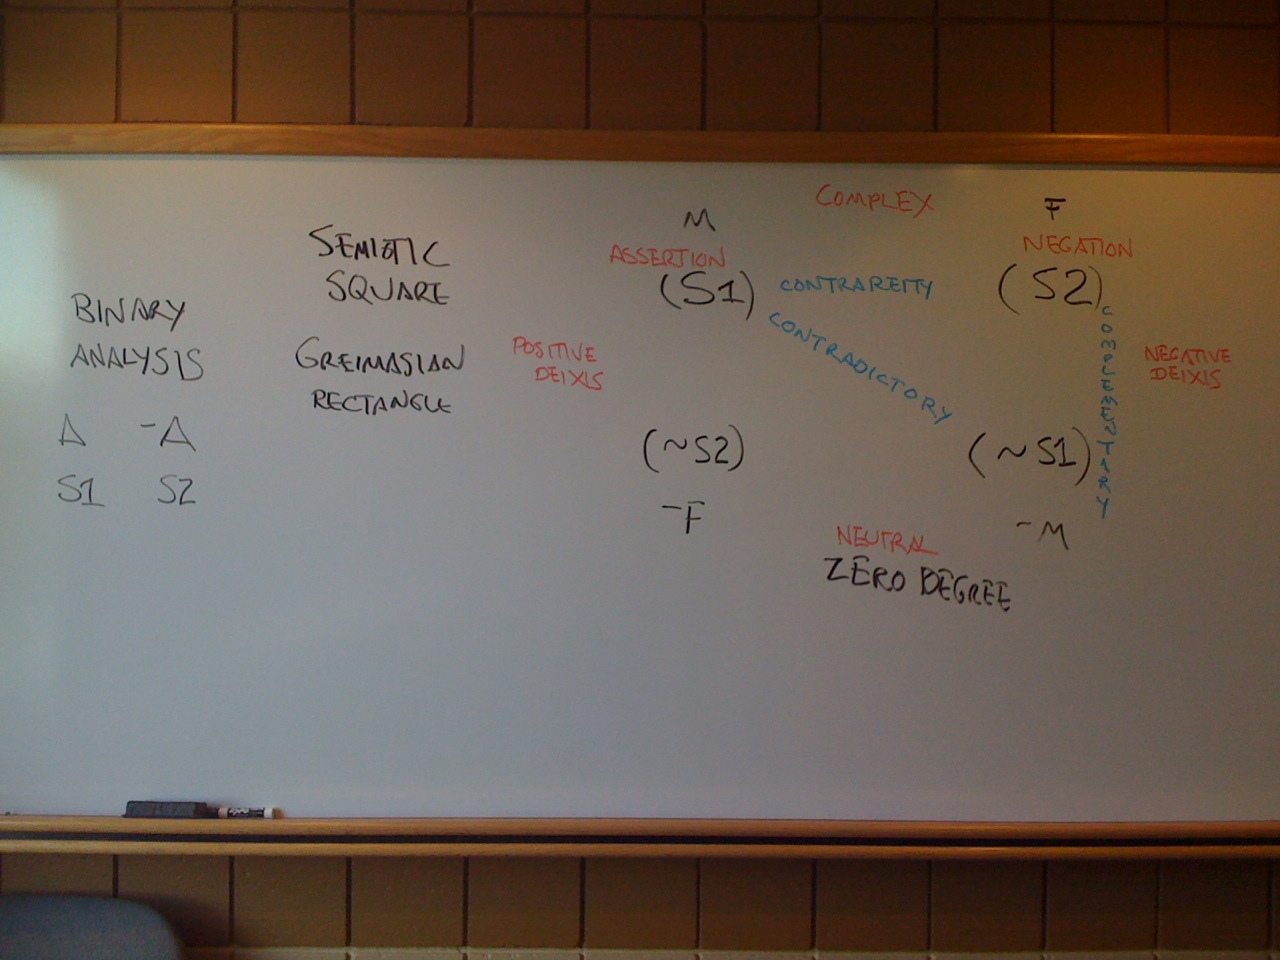 BINARY
ANALYSIS
A -A
S1 S2
SEMIOTIC
SQUARE
GREIMASIAN
RECTANGLE
COMPLEX
M F
ASSERTION NEGATION
(S1) CONTRAREITY (S2)
CONTRADICTORY
COMPLEMENTARY
POSITIVE
DEIXIS
NEGATIVE
DEIXIS
(~S2) (~S1)
-F -M
NEUTRAL
ZERO DEGREE